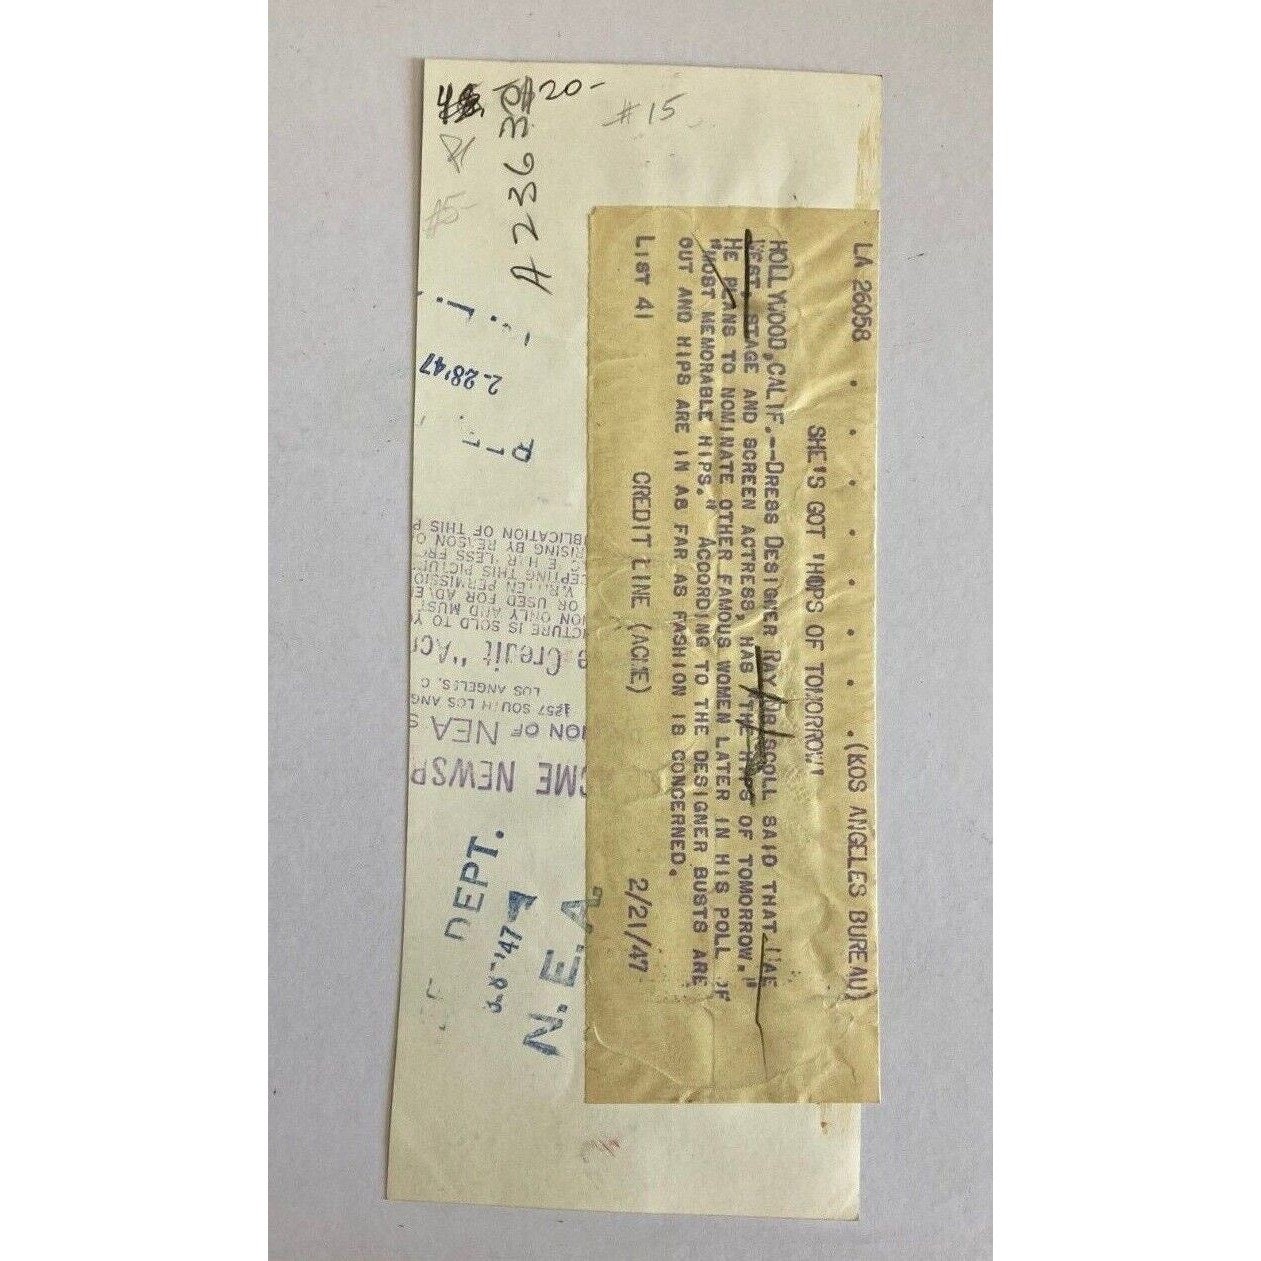 LA 26058 . . . . . . . .(KOS ANGELES BUREAU)
SHE'S GOT 'HOPS OF TOMORROW'
HOLLYWOOD, CALIF.--DRESS DESIGNER RAY DRISCOLL SAID THAT MAE
WEST, STAGE AND SCREEN ACTRESS, HAS "THE HIPS OF TOMORROW."
HE PLANS TO NOMINATE OTHER FAMOUS WOMEN LATER IN HIS POLL OF
"MOST MEMORABLE HIPS." ACCORDING TO THE DESIGNER BUSTS ARE
OUT AND HIPS ARE IN AS FAR AS FASHION IS CONCERNED.
LIST 41 CREDIT LINE (ACME) 2/21/47
$20-
#15
A 236 30
2-28'47
DEPT.
'47
N.E.A.
CME NEWSP
ION OF NEA S
1257 SOUTH LOS ANG
LOS ANGELES, C
e Credit "Acm
CTURE IS SOLD TO Y
ION ONLY AND MUST
OR USED FOR
EN PERMISSIO
THIS PICTU
LESS FR
RISING BY REASON O
BLICATION OF THIS P